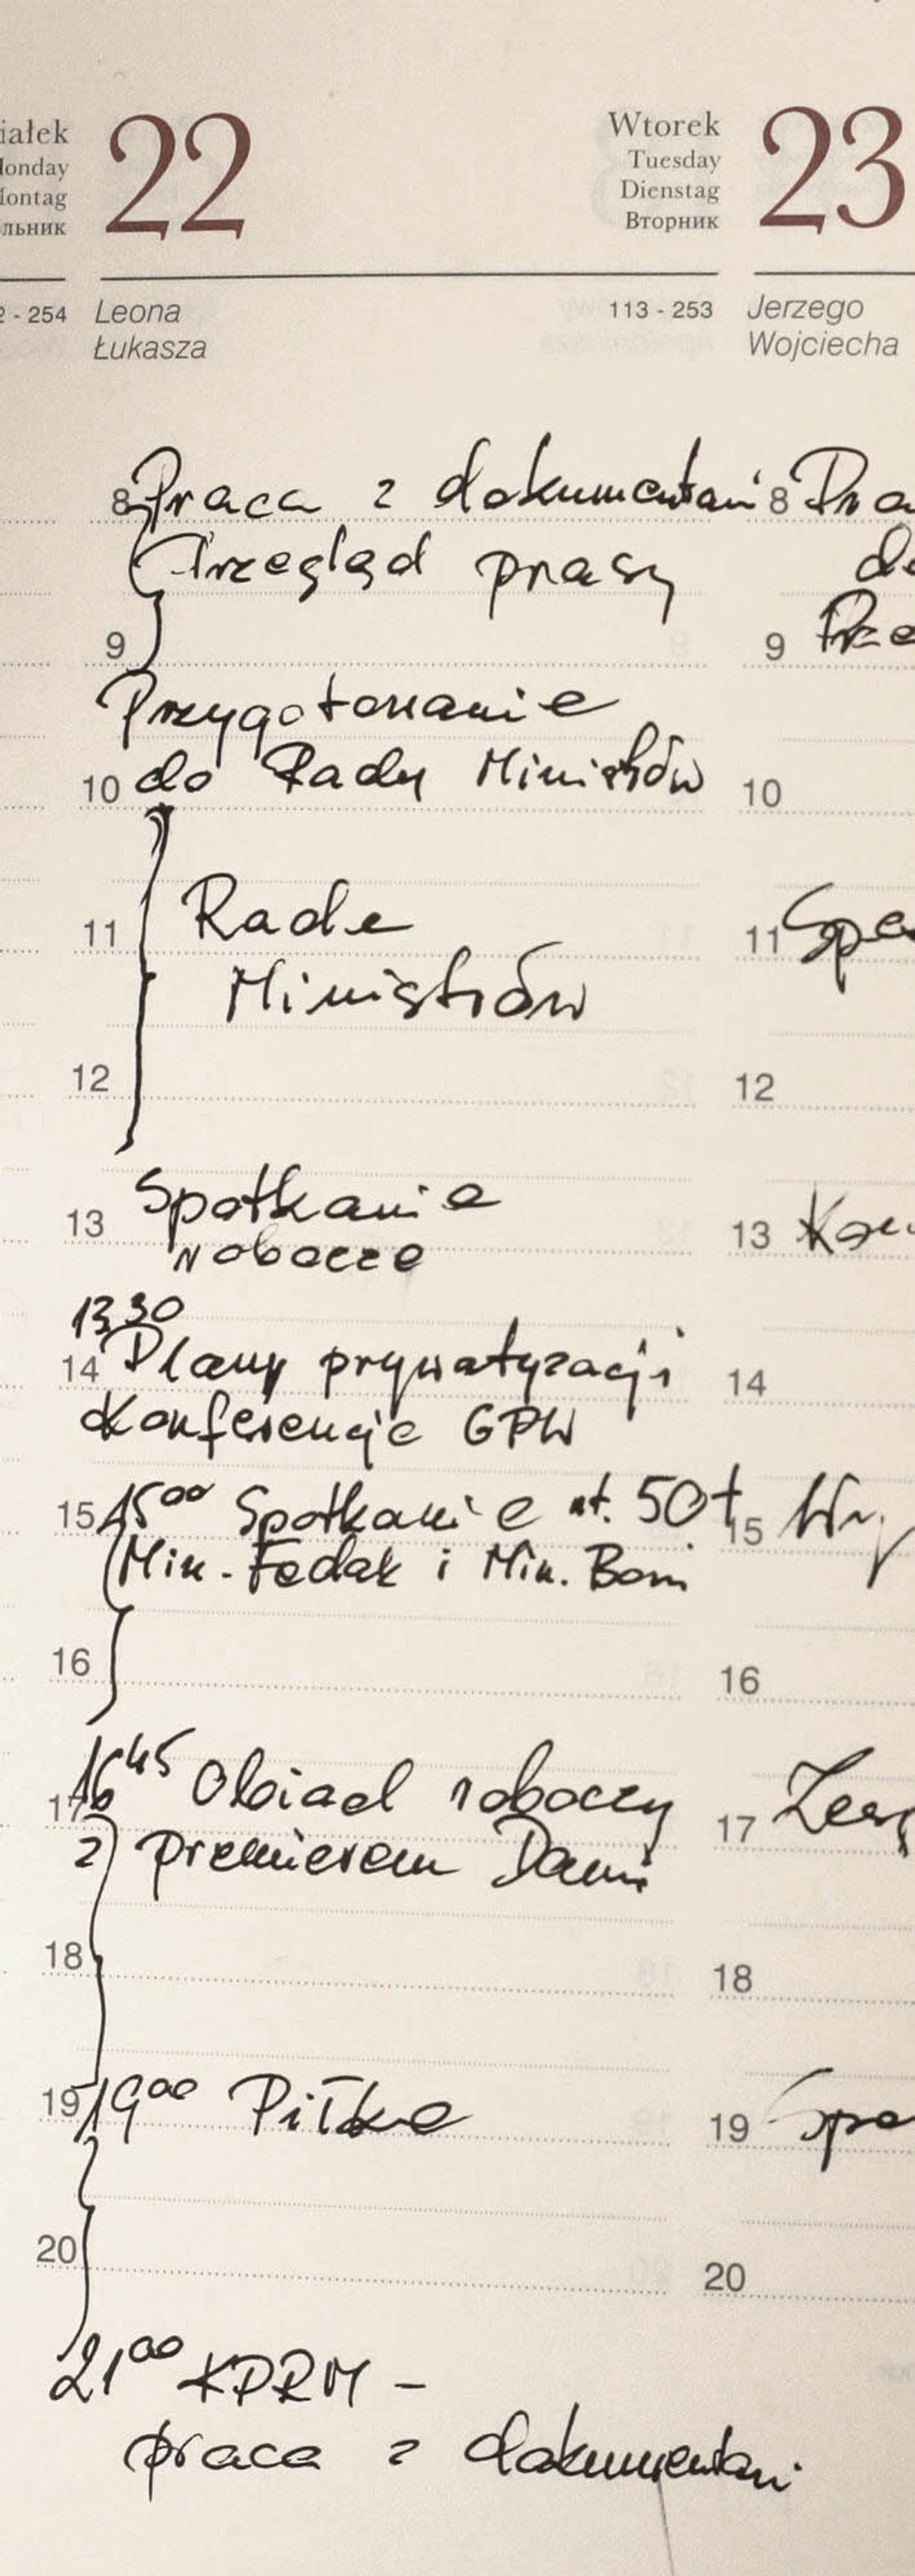 iałek
22
Wtorek
23
onday
Tuesday
ontag
Dienstag
льник
Вторник
- 254
Leona
113 - 253
Jerzego
Łukasza
Wojciecha
8 Praca z dokumentami
Przegląd prasy
9
Przygotowanie
10 do Rady Ministrów
11 Rada
Ministrów
12
13 Spotkanie
robocze
13 30
14 Plany prywatyzacji
Konferencja GPW
15 15 00 Spotkanie nt. 50+
Min. Fedak i Min. Boni
16
16 45 Obiad roboczy
17
z premierem Danii
18
19 19 00 Piłka
20
21 00 KPRM -
praca z dokumentami
8 Pra
do
9 Prze
10
11 Spo
12
13 Kon
14
15
16
17 Zes
18
19 Spo
20